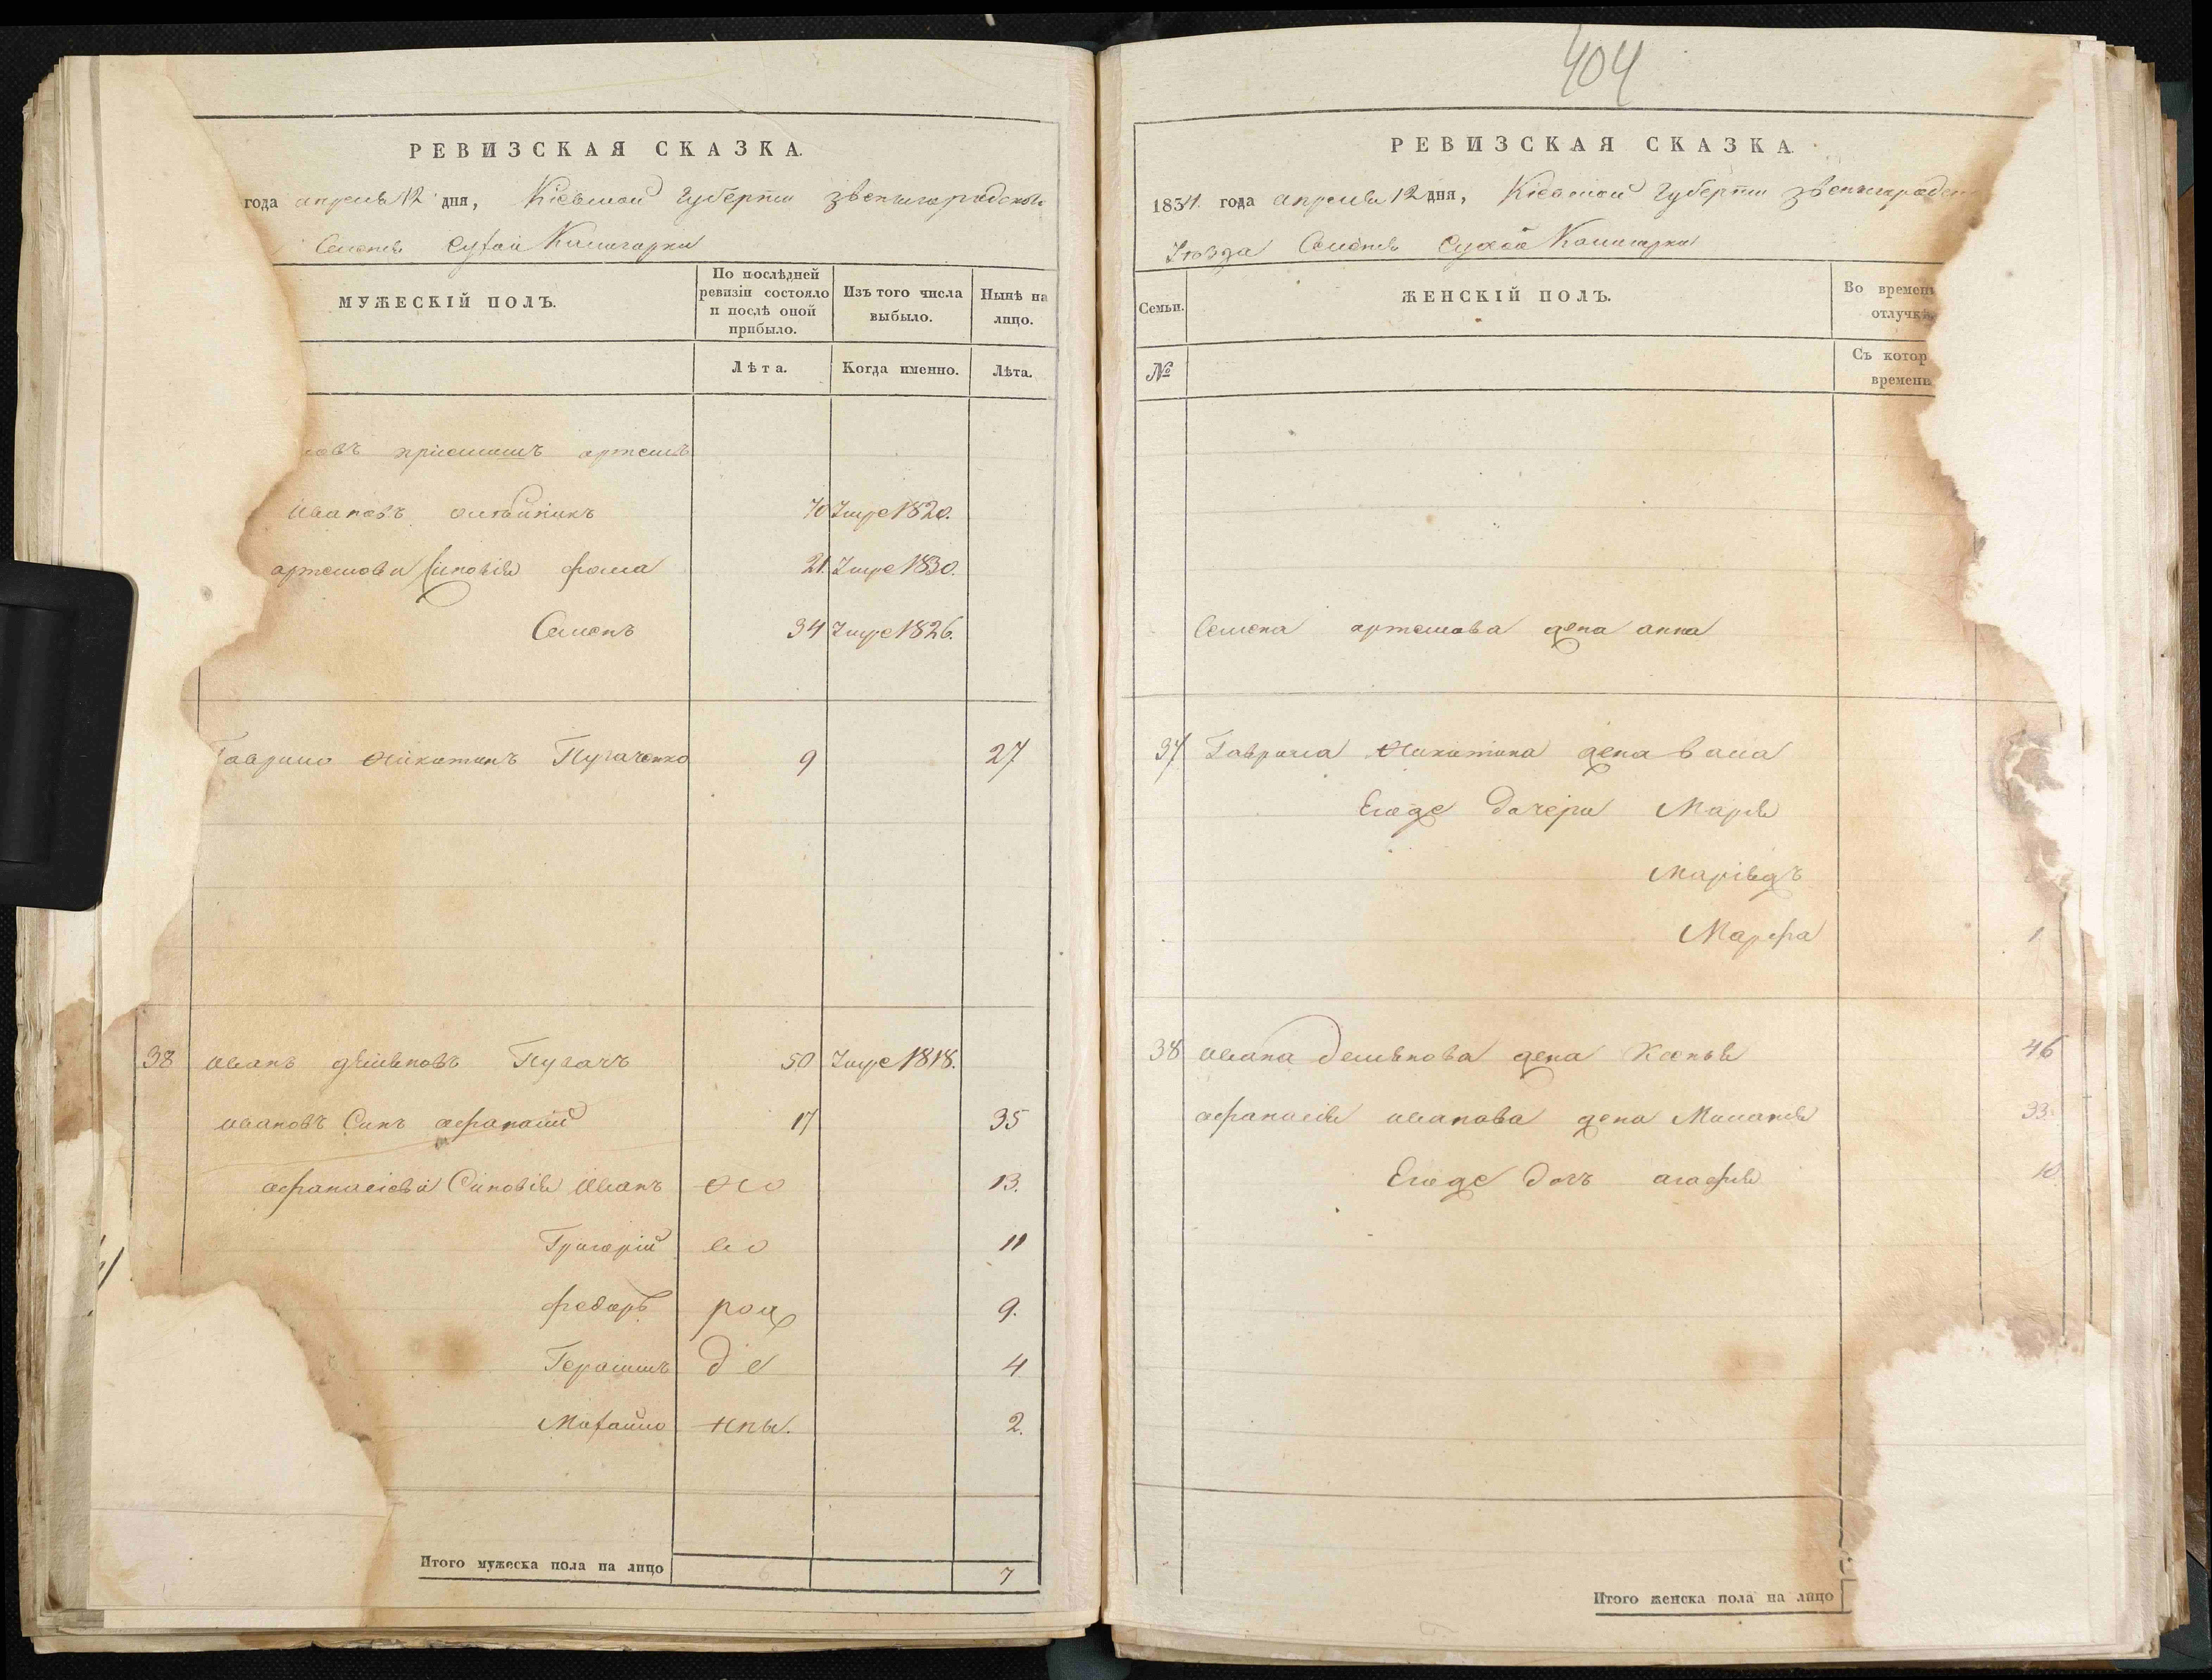 РЕВИЗСКАЯ СКАЗКА.
года апреля 12 дня, Кіевской Губерніи звенигородского
Селеніе Сухой Калигорки
МУЖЕСКІЙ ПОЛЪ.
По послѣдней ревизіи состояло и послѣ оной прибыло.
Изъ того числа выбыло.
Нынѣ на лицо.
Лѣта.
Когда именно.
Лѣта.
артемъ
Ивановъ олѣйникъ 70 Умре 1820.
артемови синовія фома 21. Умре 1830.
Семенъ 34 Умре 1826.
Гаврило Никитинъ Пугаченко 9 27
38 Иванъ Пугачъ 50 Умре 1818.
Ивановъ Синъ афанасій 17 35
афанасіеви Синовія Иванъ но 13.
Григорій во 11
федоръ рож 9.
Герасимъ де 4
Михайло нны. 2.
Итого мужеска пола на лицо 7
404
РЕВИЗСКАЯ СКАЗКА.
1834. года апреля 12 дня, Кіевской Губерніи звенигородск
Уѣзда Селеніе Сухой Калигорки
Семьи.
ЖЕНСКІЙ ПОЛЪ.
Во времен
отлучкѣ
№
Съ котор
времени
Семена артемова жена анна
37 Гаврила Никитина жена
Егоже дочери Марія
Марфа 1
38 Ивана жена Ксенія 46
афанасія иванова жена Маланія 33.
Егоже дочъ агафія 10
Итого женска пола на лицо